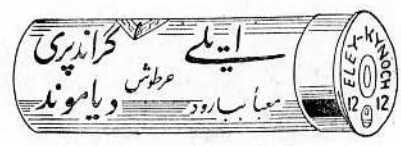 ايلي
گراندپري
خرطوش
معبأ ببارود
دياموند
ELEY-KYNOCH
12 12